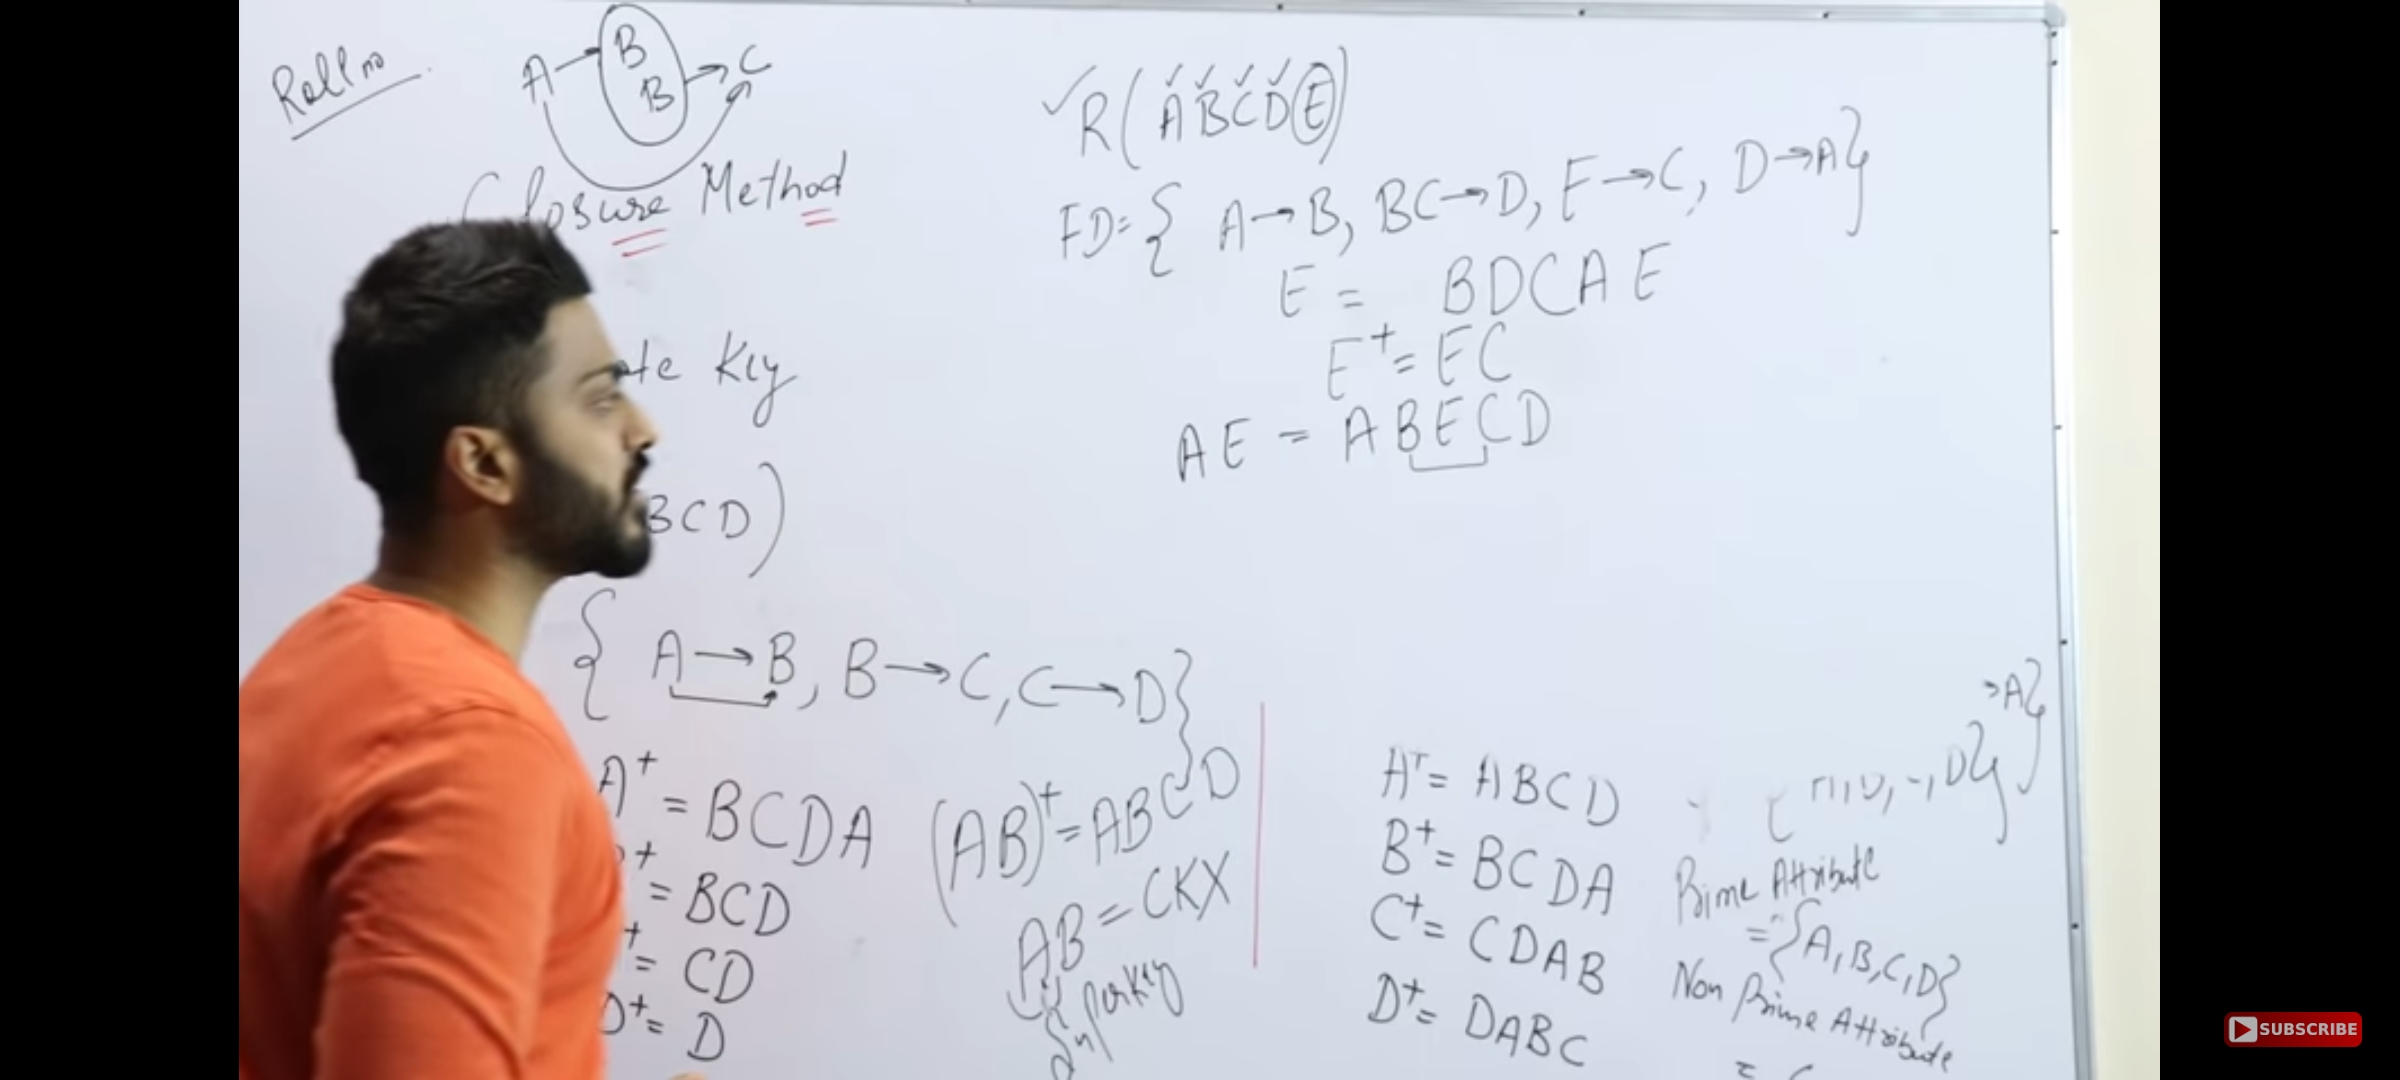 Roll no.
A → B
B → C
Closure Method
Key
BCD)
{ A → B, B → C, C → D}
A⁺ = BCDA
⁺ = BCD
⁺ = CD
D⁺ = D
(AB)⁺ = ABCD
AB = CKX
Superkey
R(ABCDE)
FD = { A → B, BC → D, E → C, D → A}
E = BDCAE
E⁺ = EC
AE = ABECD
A⁺ = ABCD
B⁺ = BCDA
C⁺ = CDAB
D⁺ = DABC
→A}
D}}
Prime Attribute
= {A, B, C, D}
Non Prime Attribute
SUBSCRIBE